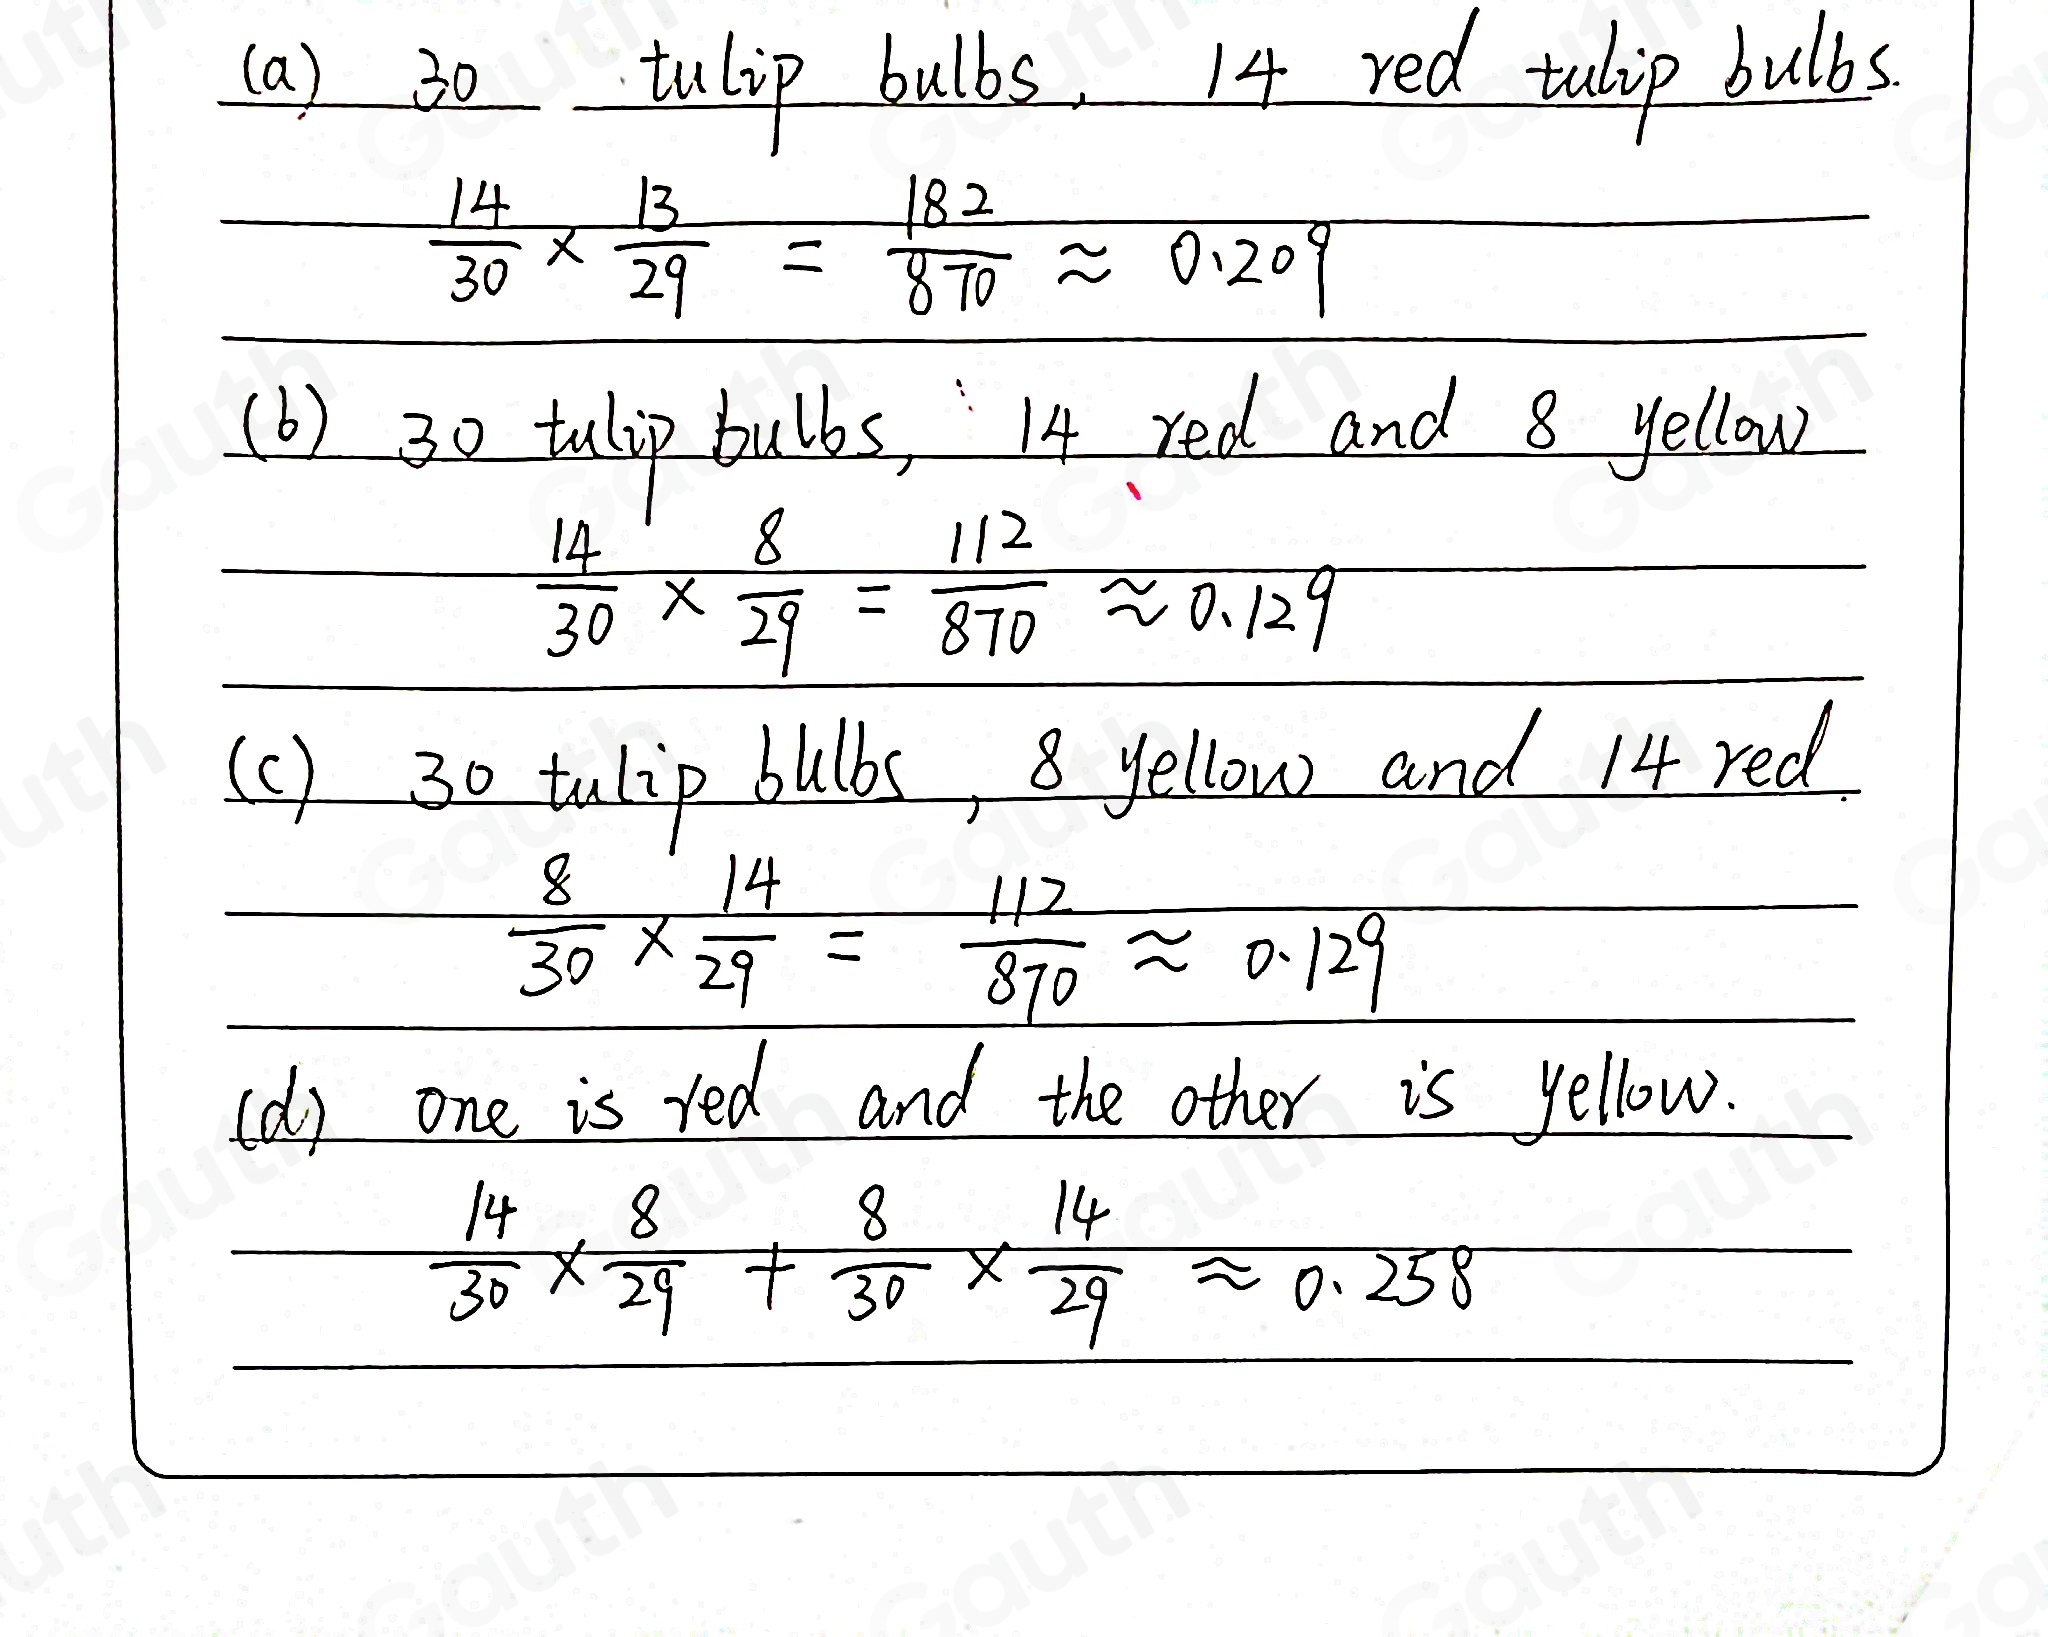 (a) 30 tulip bulbs, 14 red tulip bulbs.
14/30 × 13/29 = 182/870 ≈ 0.209
(b) 30 tulip bulbs, 14 red and 8 yellow
14/30 × 8/29 = 112/870 ≈ 0.129
(c) 30 tulip bulbs, 8 yellow and 14 red.
8/30 × 14/29 = 112/870 ≈ 0.129
(d) one is red and the other is yellow.
14/30 × 8/29 + 8/30 × 14/29 ≈ 0.258